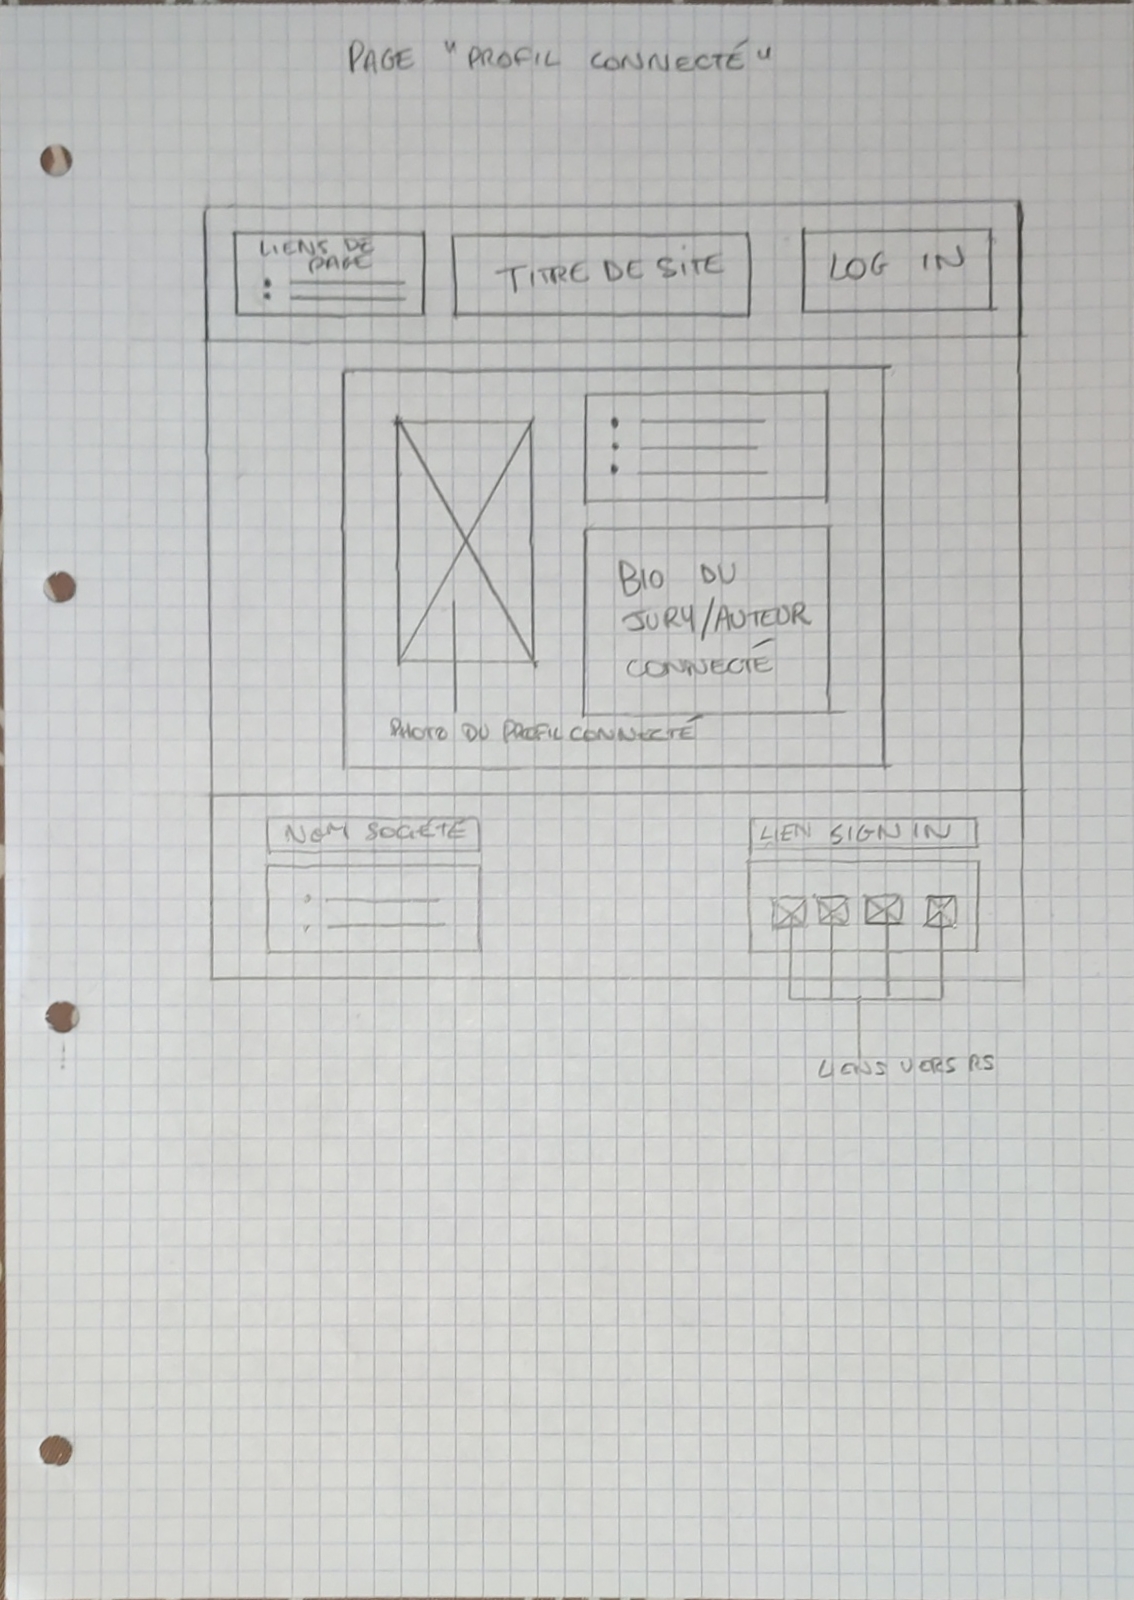 PAGE "PROFIL CONNECTÉ"
LIENS DE
PAGE
TITRE DE SITE
LOG IN
BIO DU
JURY/AUTEUR
CONNECTÉ
PHOTO DU PROFIL CONNECTÉ
NOM SOCIÉTÉ
LIEN SIGN IN
LIENS VERS RS